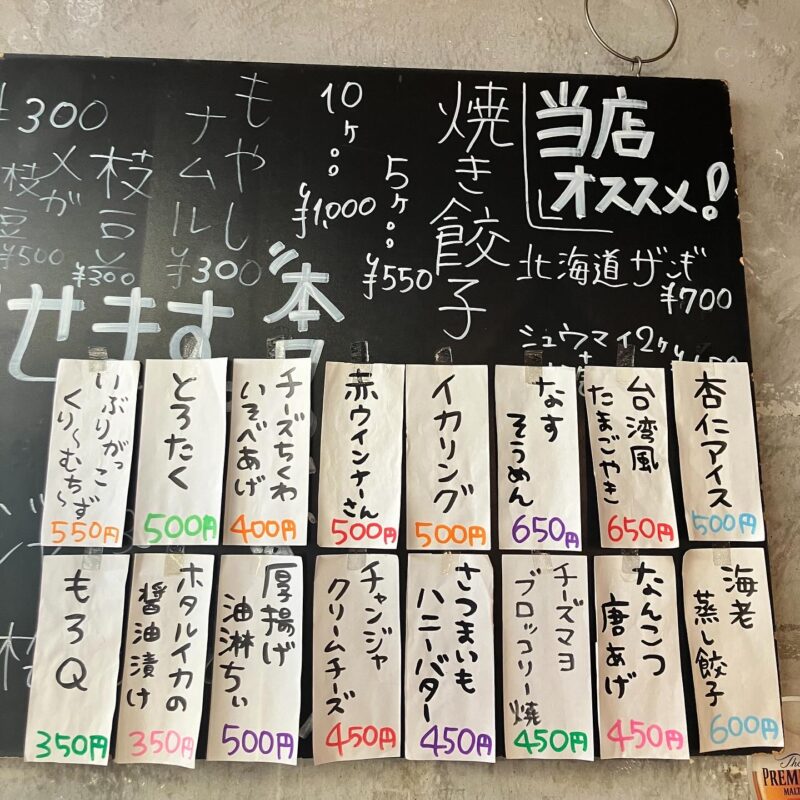 当店
オススメ!
北海道ザンギ
¥700
シュウマイ2ヶ
焼き餃子
5ヶ
¥550
10ヶ
¥1,000
もやし
ナムル
¥300
枝豆
¥300
メガ
枝豆
¥500
¥300
せます
本
杏仁アイス
500円
台湾風
たまごやき
650円
なす
そうめん
650円
イカリング
500円
赤ウインナーさん
500円
チーズちくわ
いそべあげ
400円
とろたく
500円
いぶりがっこ
くり〜むち〜ず
550円
海老
蒸し餃子
600円
なんこつ
唐あげ
450円
チーズマヨ
ブロッコリー焼
450円
さつまいも
ハニーバター
450円
チャンジャ
クリームチーズ
450円
厚揚げ
油淋ちぃ
500円
ホタルイカの
醤油漬け
350円
もろQ
350円
The
PREMIUM
MALT